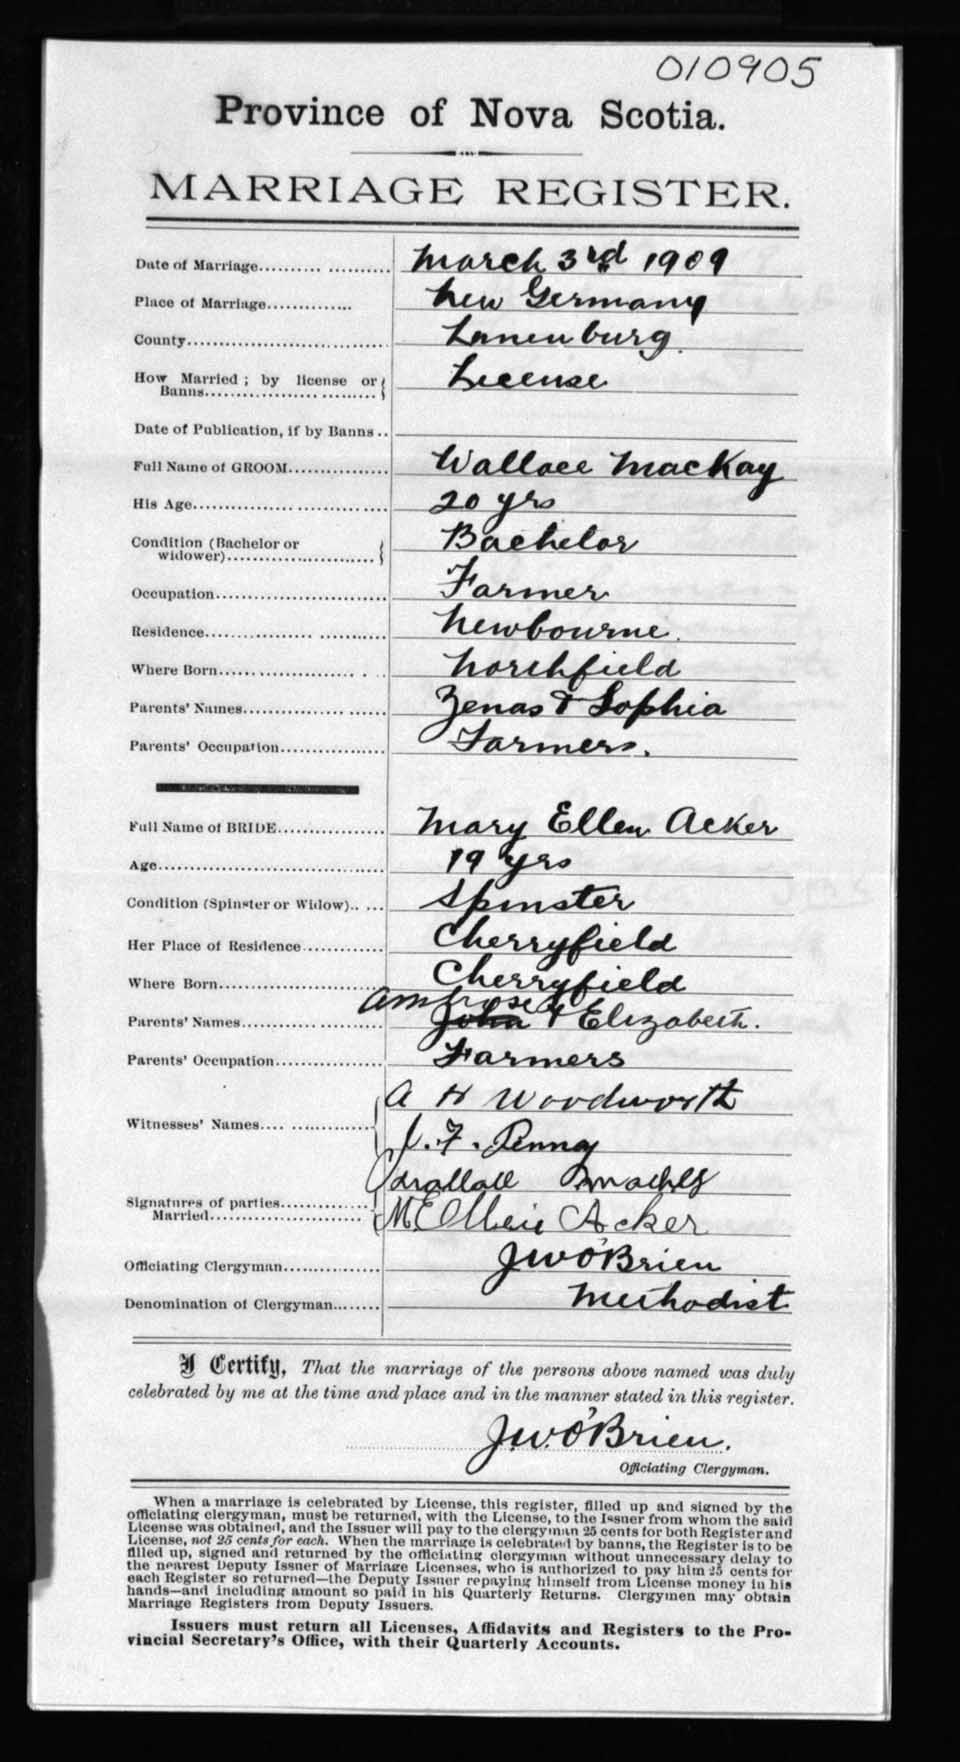 010905
Province of Nova Scotia.
MARRIAGE REGISTER.
Date of Marriage.......... ........... March 3rd 1909
Place of Marriage............. New Germany
County................................ Lunenburg
How Married ; by license or License
Banns.............................
Date of Publication, if by Banns ..
Full Name of GROOM................. Wallace MacKay
His Age................................ 20 yrs
Condition (Bachelor or Bachelor
widower)...........................
Occupation............................ Farmer
Residence............................. Newbourne.
Where Born........................... Northfield
Parents' Names....................... Zenas & Sophia
Parents' Occupation................. Farmers.
Full Name of BRIDE.................. Mary Ellen Acker
Age..................................... 19 yrs
Condition (Spinster or Widow)..... Spinster
Her Place of Residence............. Cherryfield
Where Born........................... Cherryfield
Ambrose
Parents' Names....................... John & Elizabeth.
Parents' Occupation................. Farmers
A H Woodworth
Witnesses' Names.... ..............
J. F. Penny
Signatures of parties..............
Married........................... M Ellen Acker
Officiating Clergyman............... J W O'Brien
Denomination of Clergyman........ Methodist
I Certify, That the marriage of the persons above named was duly
celebrated by me at the time and place and in the manner stated in this register.
J.W. O'Brien.
Officiating Clergyman.
When a marriage is celebrated by License, this register, filled up and signed by the
officiating clergyman, must be returned, with the License, to the Issuer from whom the said
License was obtained, and the Issuer will pay to the clergyman 25 cents for both Register and
License, not 25 cents for each. When the marriage is celebrated by banns, the Register is to be
filled up, signed and returned by the officiating clergyman without unnecessary delay to
the nearest Deputy Issuer of Marriage Licenses, who is authorized to pay him 25 cents for
each Register so returned—the Deputy Issuer repaying himself from License money in his
hands—and including amount so paid in his Quarterly Returns. Clergymen may obtain
Marriage Registers from Deputy Issuers.
Issuers must return all Licenses, Affidavits and Registers to the Pro-
vincial Secretary's Office, with their Quarterly Accounts.